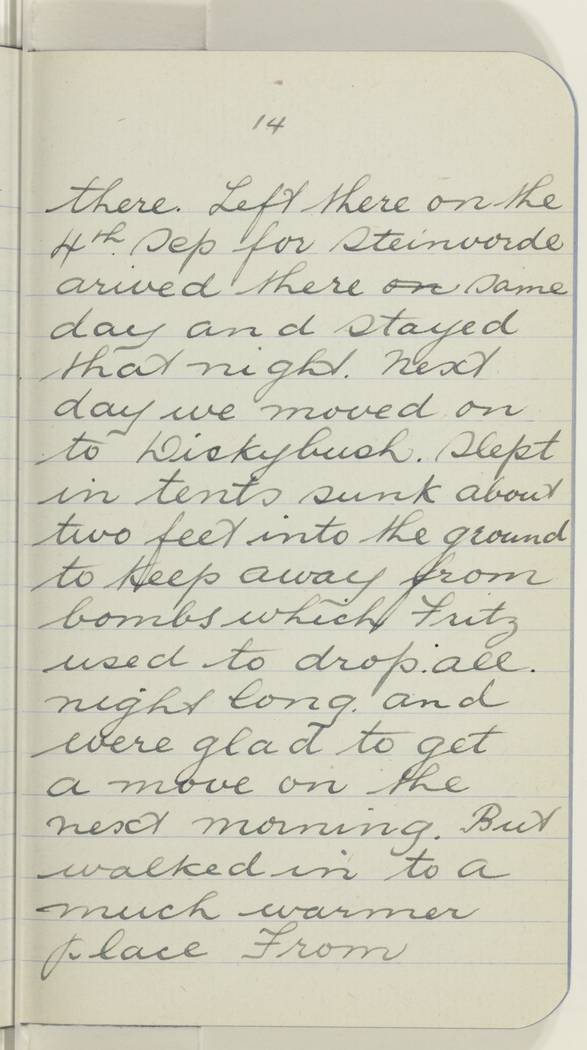 14
there. Left there on the
4th Sep for Steinvorde
arived there on same
day and stayed
that night. Next
day we moved on
to Dickybush. Slept
in tents sunk about
two feet into the ground
to keep away from
bombs which Fritz
used to drop.all.
night long. and
were glad to get
a move on the
next morning. But
walked in to a
much warmer
place From